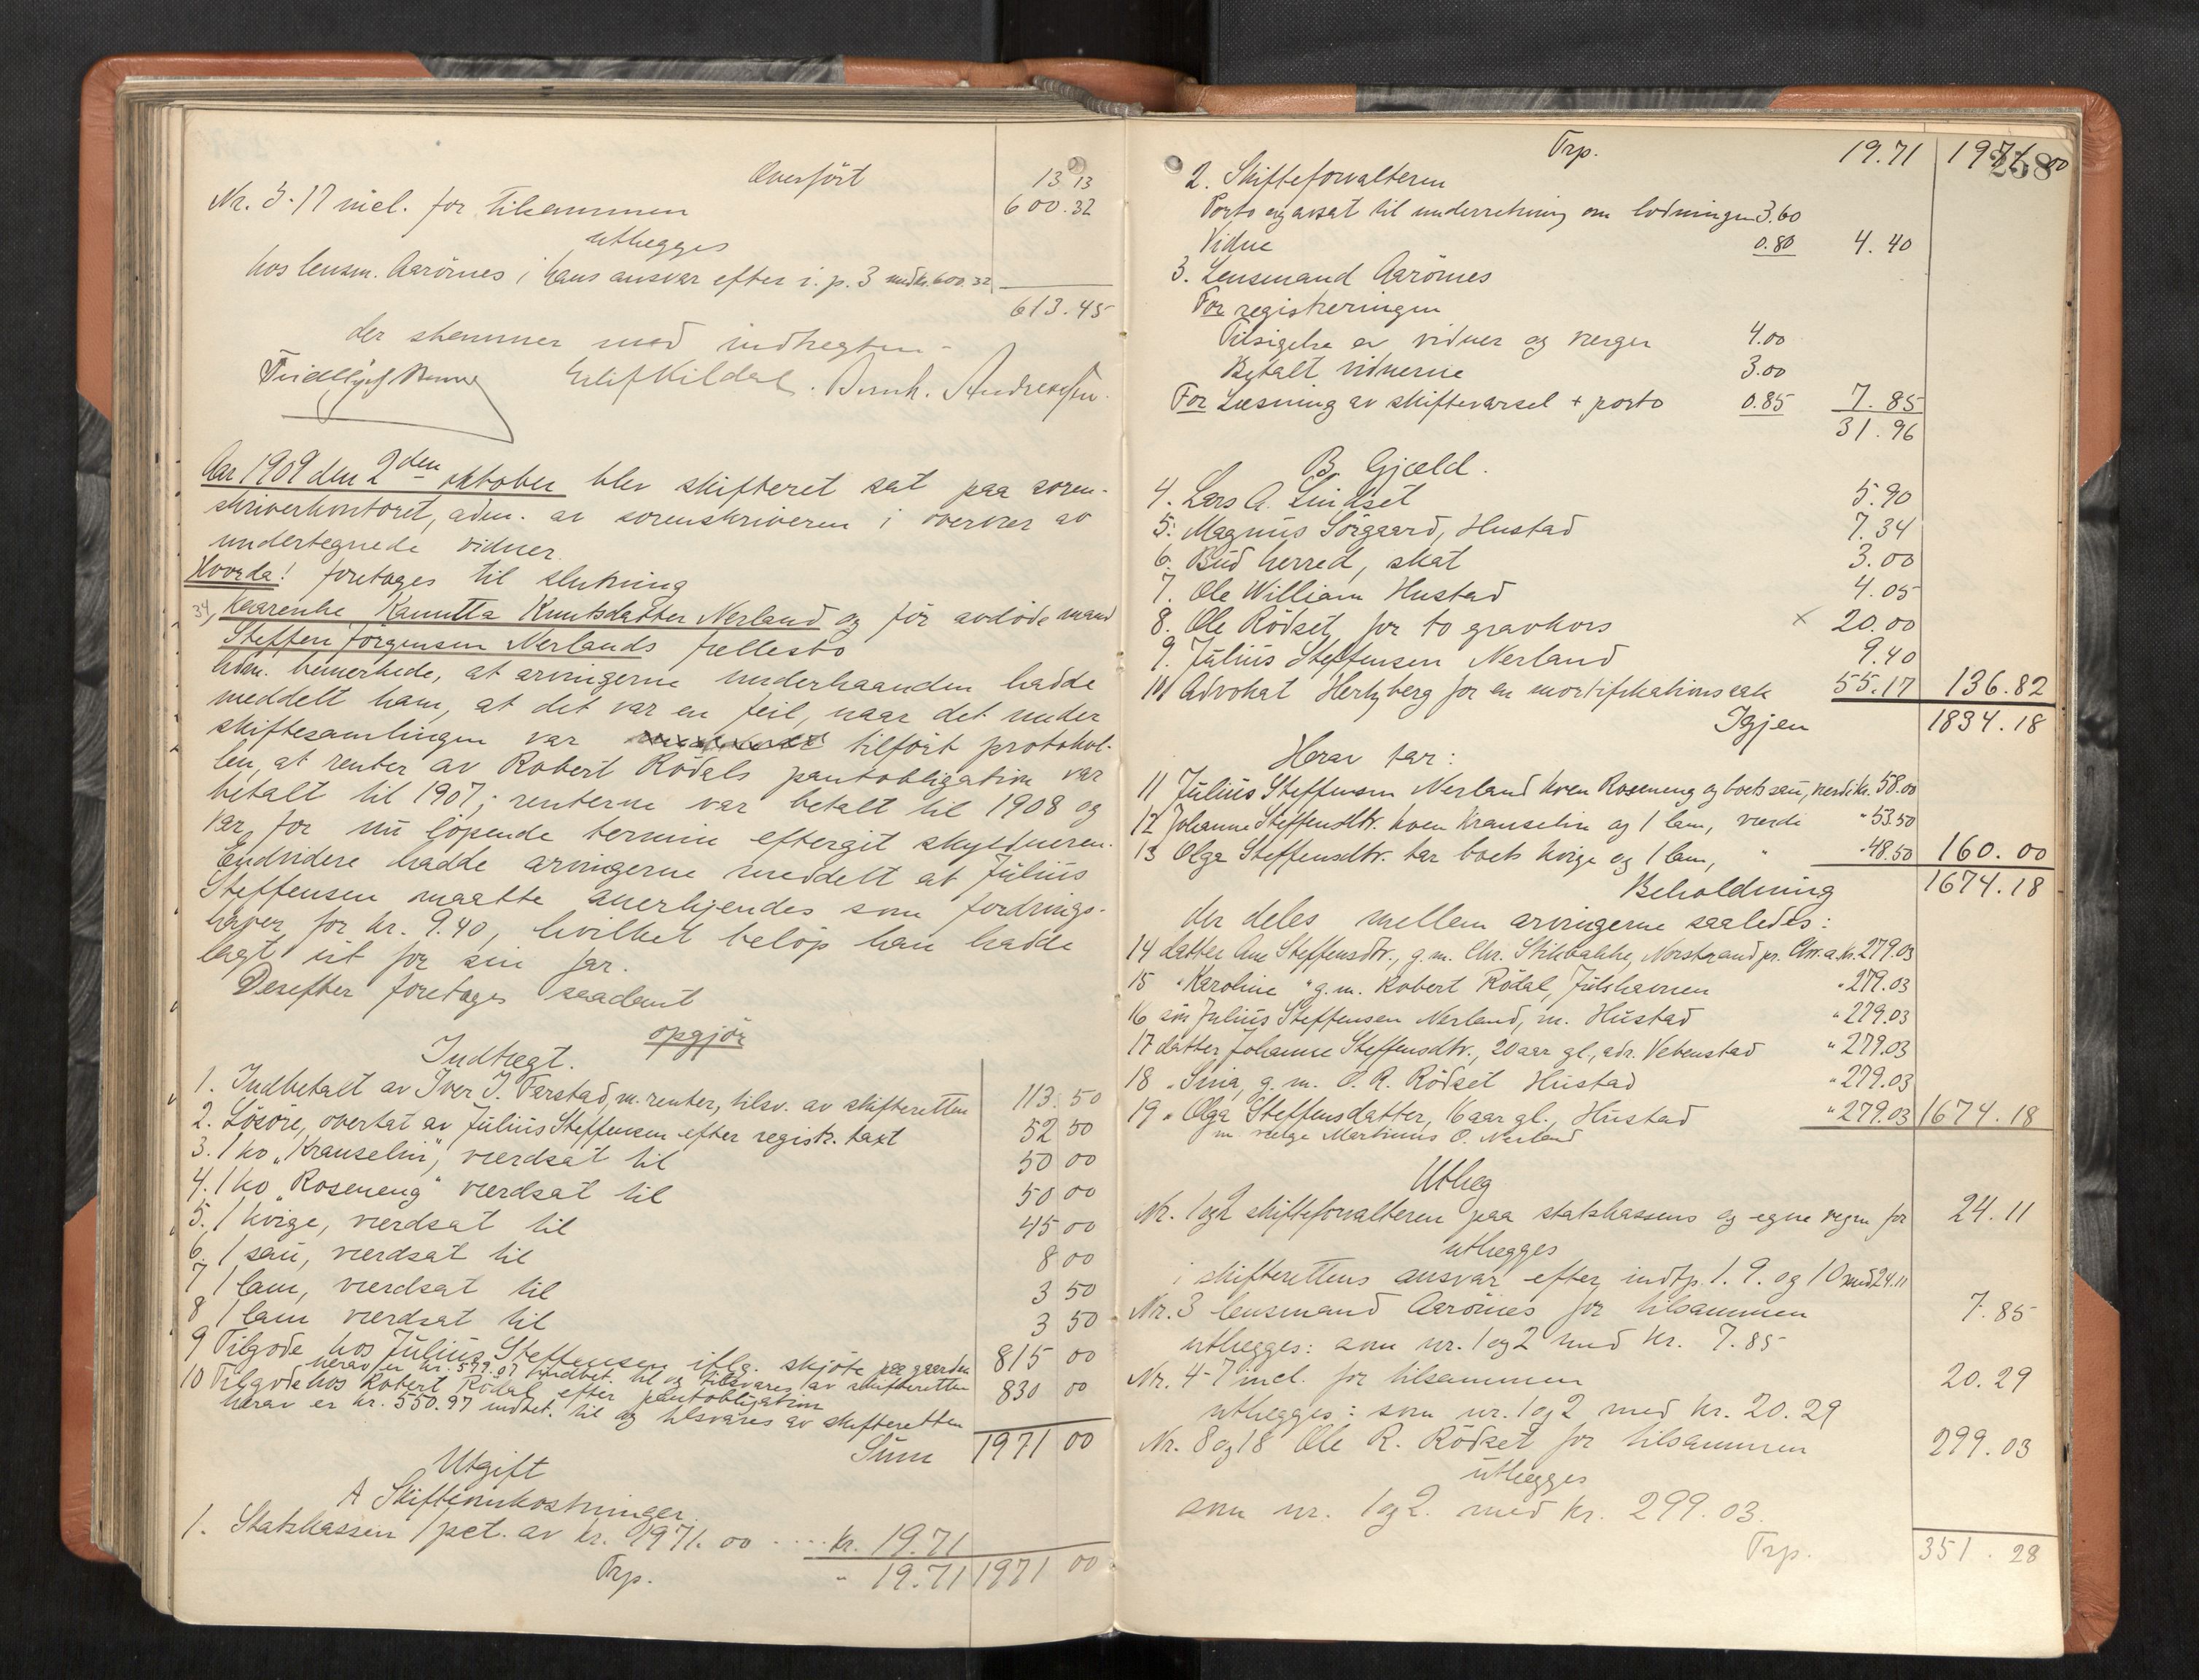 Overført 13 13
Nr. 3-17 incl. for tilsammen 600.32
utlægges
hos lensm. Aarönes i hans ansvar efter i. p. 3 med kr. 600.32
613.45
der stemmer med indtegten
Erlif Kildal. Bernh. Andreassen.
Aar 1909 den 2den oktober blev skifteret sat paa soren-
skriverkontoret, adm. av sorenskriveren i overvær av
undertegnede vidner.
Hvorda! foretages til slutning
34, Kaarenhe Kanutta Knutsdatter Nerland og før avdöde mand
Steffen Jörgensen Nerlands fællesbo
Adm. bemerkede, at arvingerne underhaanden hadde
meddelt ham, at det var en feil, naar det under
skiftesamlingen var tilfört protokol-
len, at renter av Robert Rödals pantobligation var
betalt til 1907; renterne var betalt til 1908 og
var for nu löpende termin eftergit skyldneren.
Endvidere hadde arvingerne meddelt at Julius
Steffensen maatte anerkjendes som fordrings-
haver for kr. 9.40, hvilket belöp han hadde
lagt ut for sin far.
Derefter foretages saadant
opgjör
Indtægt.
1. Indbetalt av Iver J. Farstad, m. renter, tilsv. av skifteretten 113.50
2. Lösöre, overtat av Julius Steffensen efter registr. taxt 52 50
3. 1 ko „Kranselin", værdsat til 50 00
4. 1 ko „Roseneng" værdsat til 50 00
5. 1 kvige, værdsat til 45 00
6. 1 sau, værdsat til 8 00
7 1 lam, værdsat til 3 50
8 1 lam værdsat til 3 50
9 Tilgode hos Julius Steffensen iflg. skjöte paa gaarden 815 00
herav er kr. 579.07 indbet. til og tilsvares av skifteretten
10 Tilgode hos Robert Rödal efter pantobligation 830 00
herav er kr. 550.97 indbet. til og tilsvares av skifteretten
Sum 1971 00
Utgift
A Skifteomkostninger.
1. Statskassen 1 pct. av kr. 1971.00 ..... kr. 19.71
Trp. " 19.71 1971 00
Trp. 19.71 1971 00
258
2. Skifteforvalteren
Porto og avsat til underretning om lodningen 3.60
Vidne 0.80 4.40
3. Lensmand Aarönes
For registreringen
Tilsigelse av vidner og verger 4.00
Betalt vidnerne 3.00
For Læsning av skiftevarsel + porto 0.85 7.85
31.96
B. Gjæld.
4. Lars A. Lindset 5.90
5. Magnus Sörgaard, Hustad 7.34
6. Bud herred, skat 3.00
7. Ole William Hustad 4.05
8. Ole Rödset, for to gravkors × 20.00
9. Julius Steffensen Nerland 9.40
10 Advokat Hertzberg for en mortifikationssak 55.17 136.82
Igjen 1834.18
Herav tar:
11 Julius Steffensen Nerland koen Roseneng og boets sau, værdi kr. 58.00
12 Johanne Steffensdtr. koen Kranselin og 1 lam, værdi " 53.50
13 Olga Steffensdtr. tar boets kvige og 1 lam, " " 48.50 160.00
Beholdning 1674.18
der deles mellem arvingerne saaledes:
14 datter Ane Steffensdtr., g.m. Chr. Stikbakke, Norstrand pr. Chr.a. kr. 279.03
15 " Karoline " g.m. Robert Rödal, Julshavnen " 279.03
16 sön Julius Steffensen Nerland, m. Hustad " 279.03
17 datter Johanne Steffensdtr., 20 aar gl., adr. Vebenstad " 279.03
18 " Sina, g. m. O. R. Rödset Hustad " 279.03
19 " Olga Steffensdatter, 16 aar gl., Hustad " 279.03 1674.18
m. verge Martinus O. Nerland
Utlæg
Nr. 1 og 2 skifteforvalteren paa statskassens og egne vegne for 24.11
utlægges
i skifterettens ansvar efter indtp. 1. 9. og 10 med 24.11
Nr. 3 lensmand Aarönes for tilsammen 7.85
utlægges: som nr. 1 og 2 med kr. 7.85
Nr. 4-7 incl. for tilsammen 20.29
utlægges: som nr. 1 og 2 med kr. 20.29
Nr. 8 og 18 Ole R. Rödset for tilsammen 299.03
utlægges
som nr. 1 og 2. med kr. 299.03.
Trp. 351.28